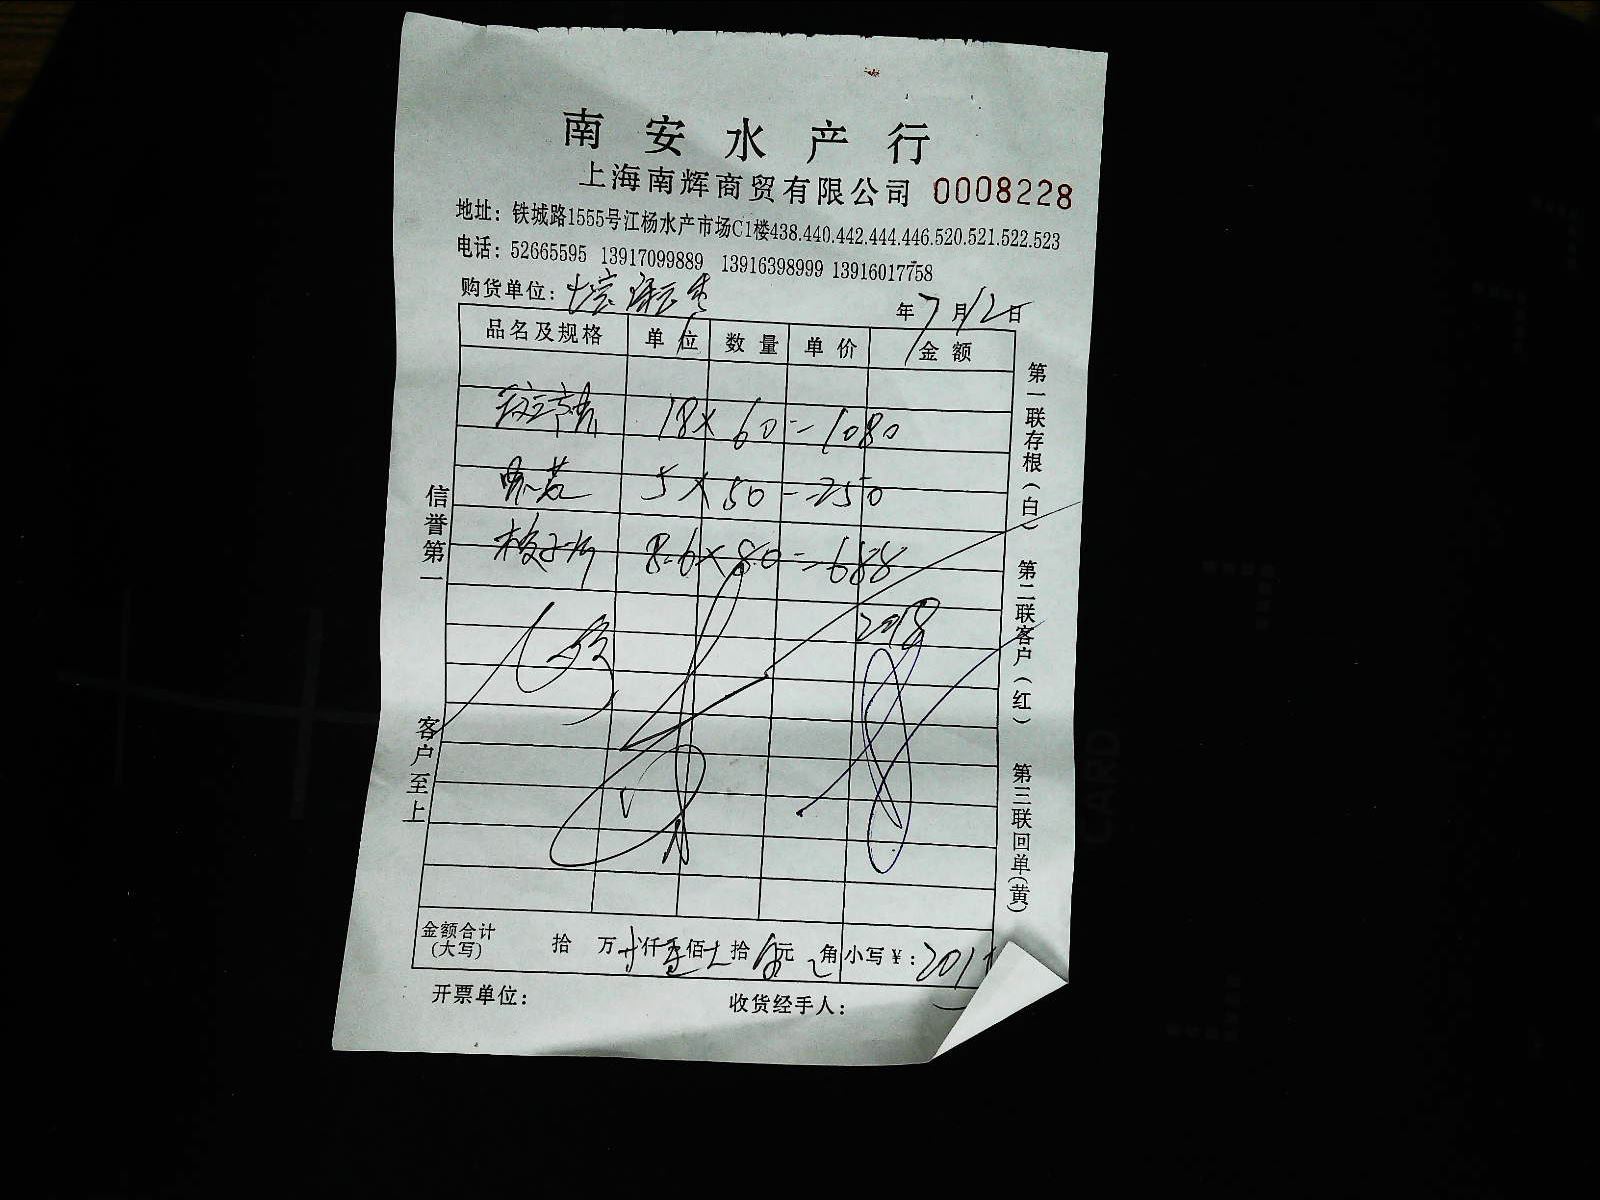 南安水产行
上海南辉商贸有限公司 0008228
地址：铁城路1555号江杨水产市场C1楼438.440.442.444.446.520.521.522.523
电话：52665595 13917099889 13916398999 13916017758
购货单位：
年7月12日
品名及规格 单位 数量 单价 金额
18×60=1080
5×50=250
8.6×80=688
2018
金额合计（大写） 拾 万 仟 佰 拾 元 角 小写￥：201
开票单位： 收货经手人：
信誉第一 客户至上
第一联存根（白） 第二联客户（红） 第三联回单（黄）